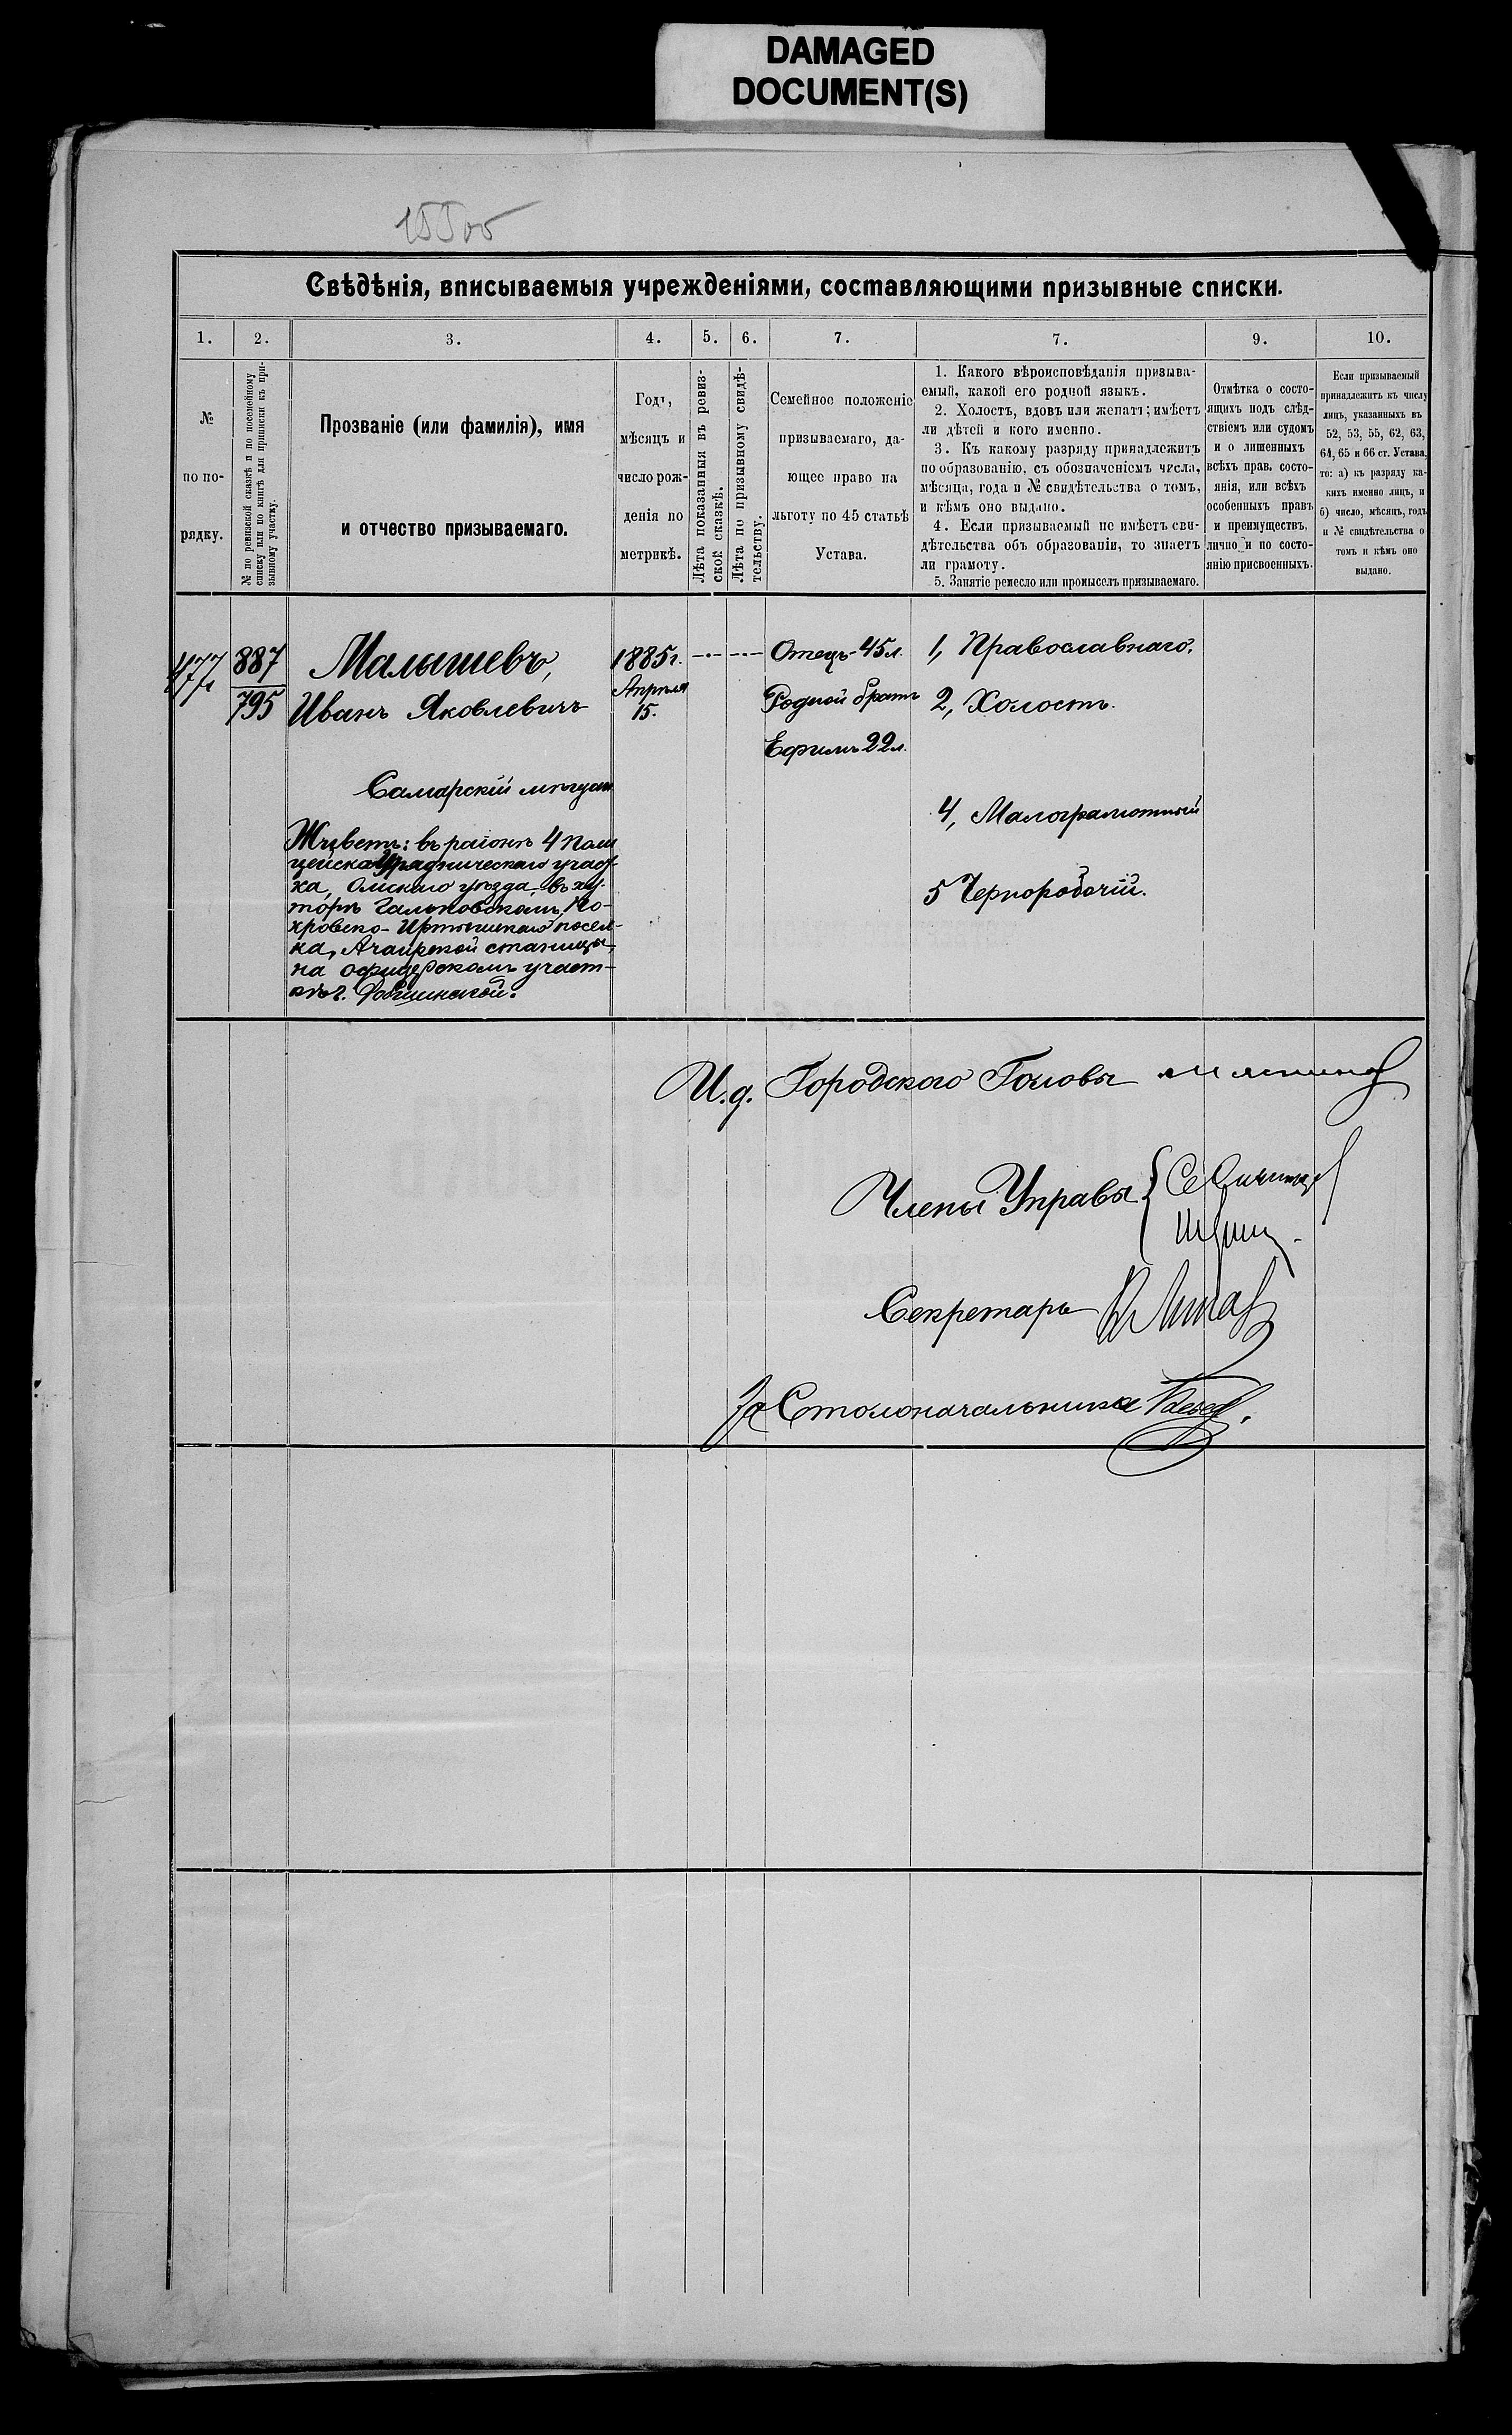 DAMAGED
DOCUMENT(S)
Свѣдѣнія, вписываемыя учрежденіями, составляющими призывные списки.
1.
2.
3.
4.
5.
6.
7.
7.
9.
10.
№
по по-
рядку.
№ по ревизской сказкѣ и по посемейному
списку или по книгѣ для приписки къ при-
зывному участку.
Прозваніе (или фамилія), имя
и отчество призываемаго.
Годъ,
мѣсяцъ и
число рож-
денія по
метрикѣ.
Лѣта показанныя въ ревиз-
ской сказкѣ.
Лѣта по призывному свидѣ-
тельству.
Семейное положеніе
призываемаго, да-
ющее право на
льготу по 45 статьѣ
Устава.
1. Какого вѣроисповѣданія призыва-
емый, какой его родной языкъ.
2. Холостъ, вдовъ или женатъ; имѣетъ
ли дѣтей и кого именно.
3. Къ какому разряду принадлежитъ
по образованію, съ обозначеніемъ числа,
мѣсяца, года и № свидѣтельства о томъ,
и кѣмъ оно выдано.
4. Если призываемый не имѣетъ сви-
дѣтельства объ образованіи, то знаетъ
ли грамоту.
5. Занятіе ремесло или промыселъ призываемаго.
Отмѣтка о состо-
ящихъ подъ слѣд-
ствіемъ или судомъ
и о лишенныхъ
всѣхъ прав, состо-
янія, или всѣхъ
особенныхъ правъ
и преимуществъ,
лично и по состо-
янію присвоенныхъ.
Если призываемый
принадлежитъ къ числу
лицъ, указанныхъ въ
52, 53, 55, 62, 63,
64, 65 и 66 ст. Устава,
то: а) къ разряду ка-
кихъ именно лицъ, и
б) число, мѣсяцъ, годъ
и № свидѣтельства о
томъ и кѣмъ оно
выдано.
477
887
795
Малышевъ,
Иванъ Яковлевичъ
Самарскій мѣщан
Живетъ: въ районѣ 4 Поли
цейска Урядническаго участ-
ка, Омскаго уѣзда, въ ху-
торѣ Гальковскомъ, По-
кровско-Иртышскаго посел-
ка, Ачаирской станицы,
на офицерскомъ участ-
кѣ г.
1885г.
Апрѣля
15.
Отецъ-45л.
Родной братъ
Ефимъ 22л.
1, Православнаго.
2, Холостъ.
4, Малограмотный
5 Чернорабочій.
И.д. Городского Головы
Члены Управы
Секретарь
За Столоначальника